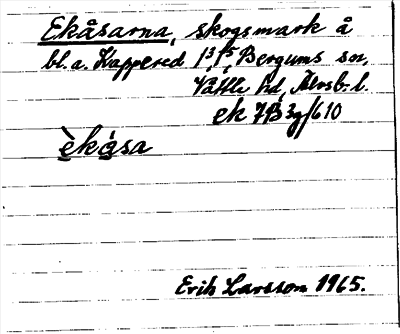 Ekåsarna, skogsmark å
bl. a. Kappered 1³ 1⁵, Bergums sn,
Vättle hd, Älvsb. l.
ek 7B 3g/610
èkåsa
Erik Larsson 1965.